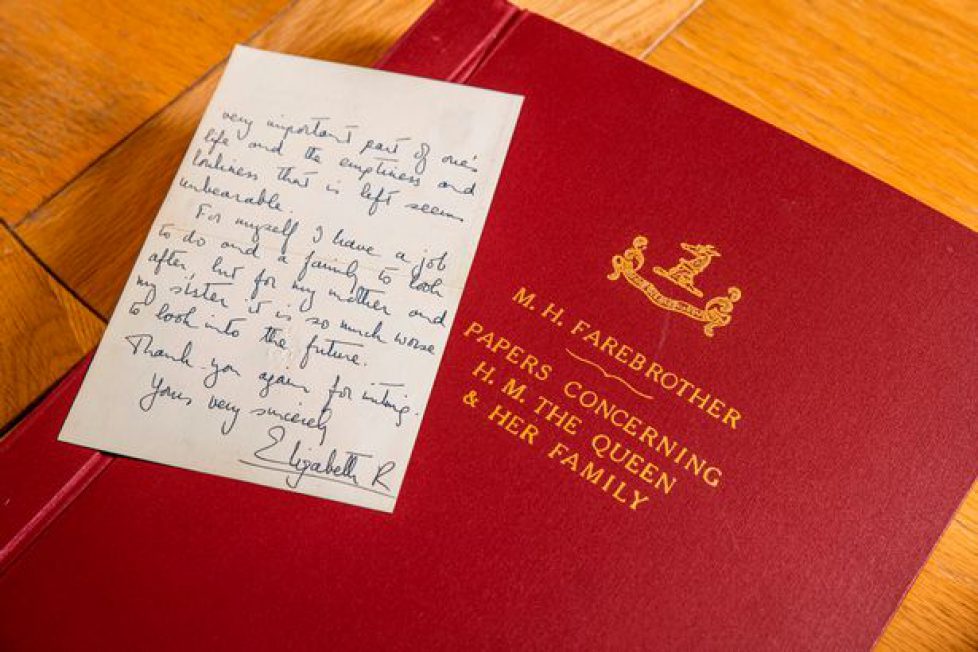 very important part of one's
life and the emptiness and
lonliness that is left seems
unbearable.
For myself I have a job
to do and a family to look
after, but for my mother and
my sister it is so much worse
to look into the future.
Thank-you again for writing.
Yours very sincerely
Elizabeth R
M. H. FAREBROTHER
PAPERS CONCERNING
H. M. THE QUEEN
& HER FAMILY